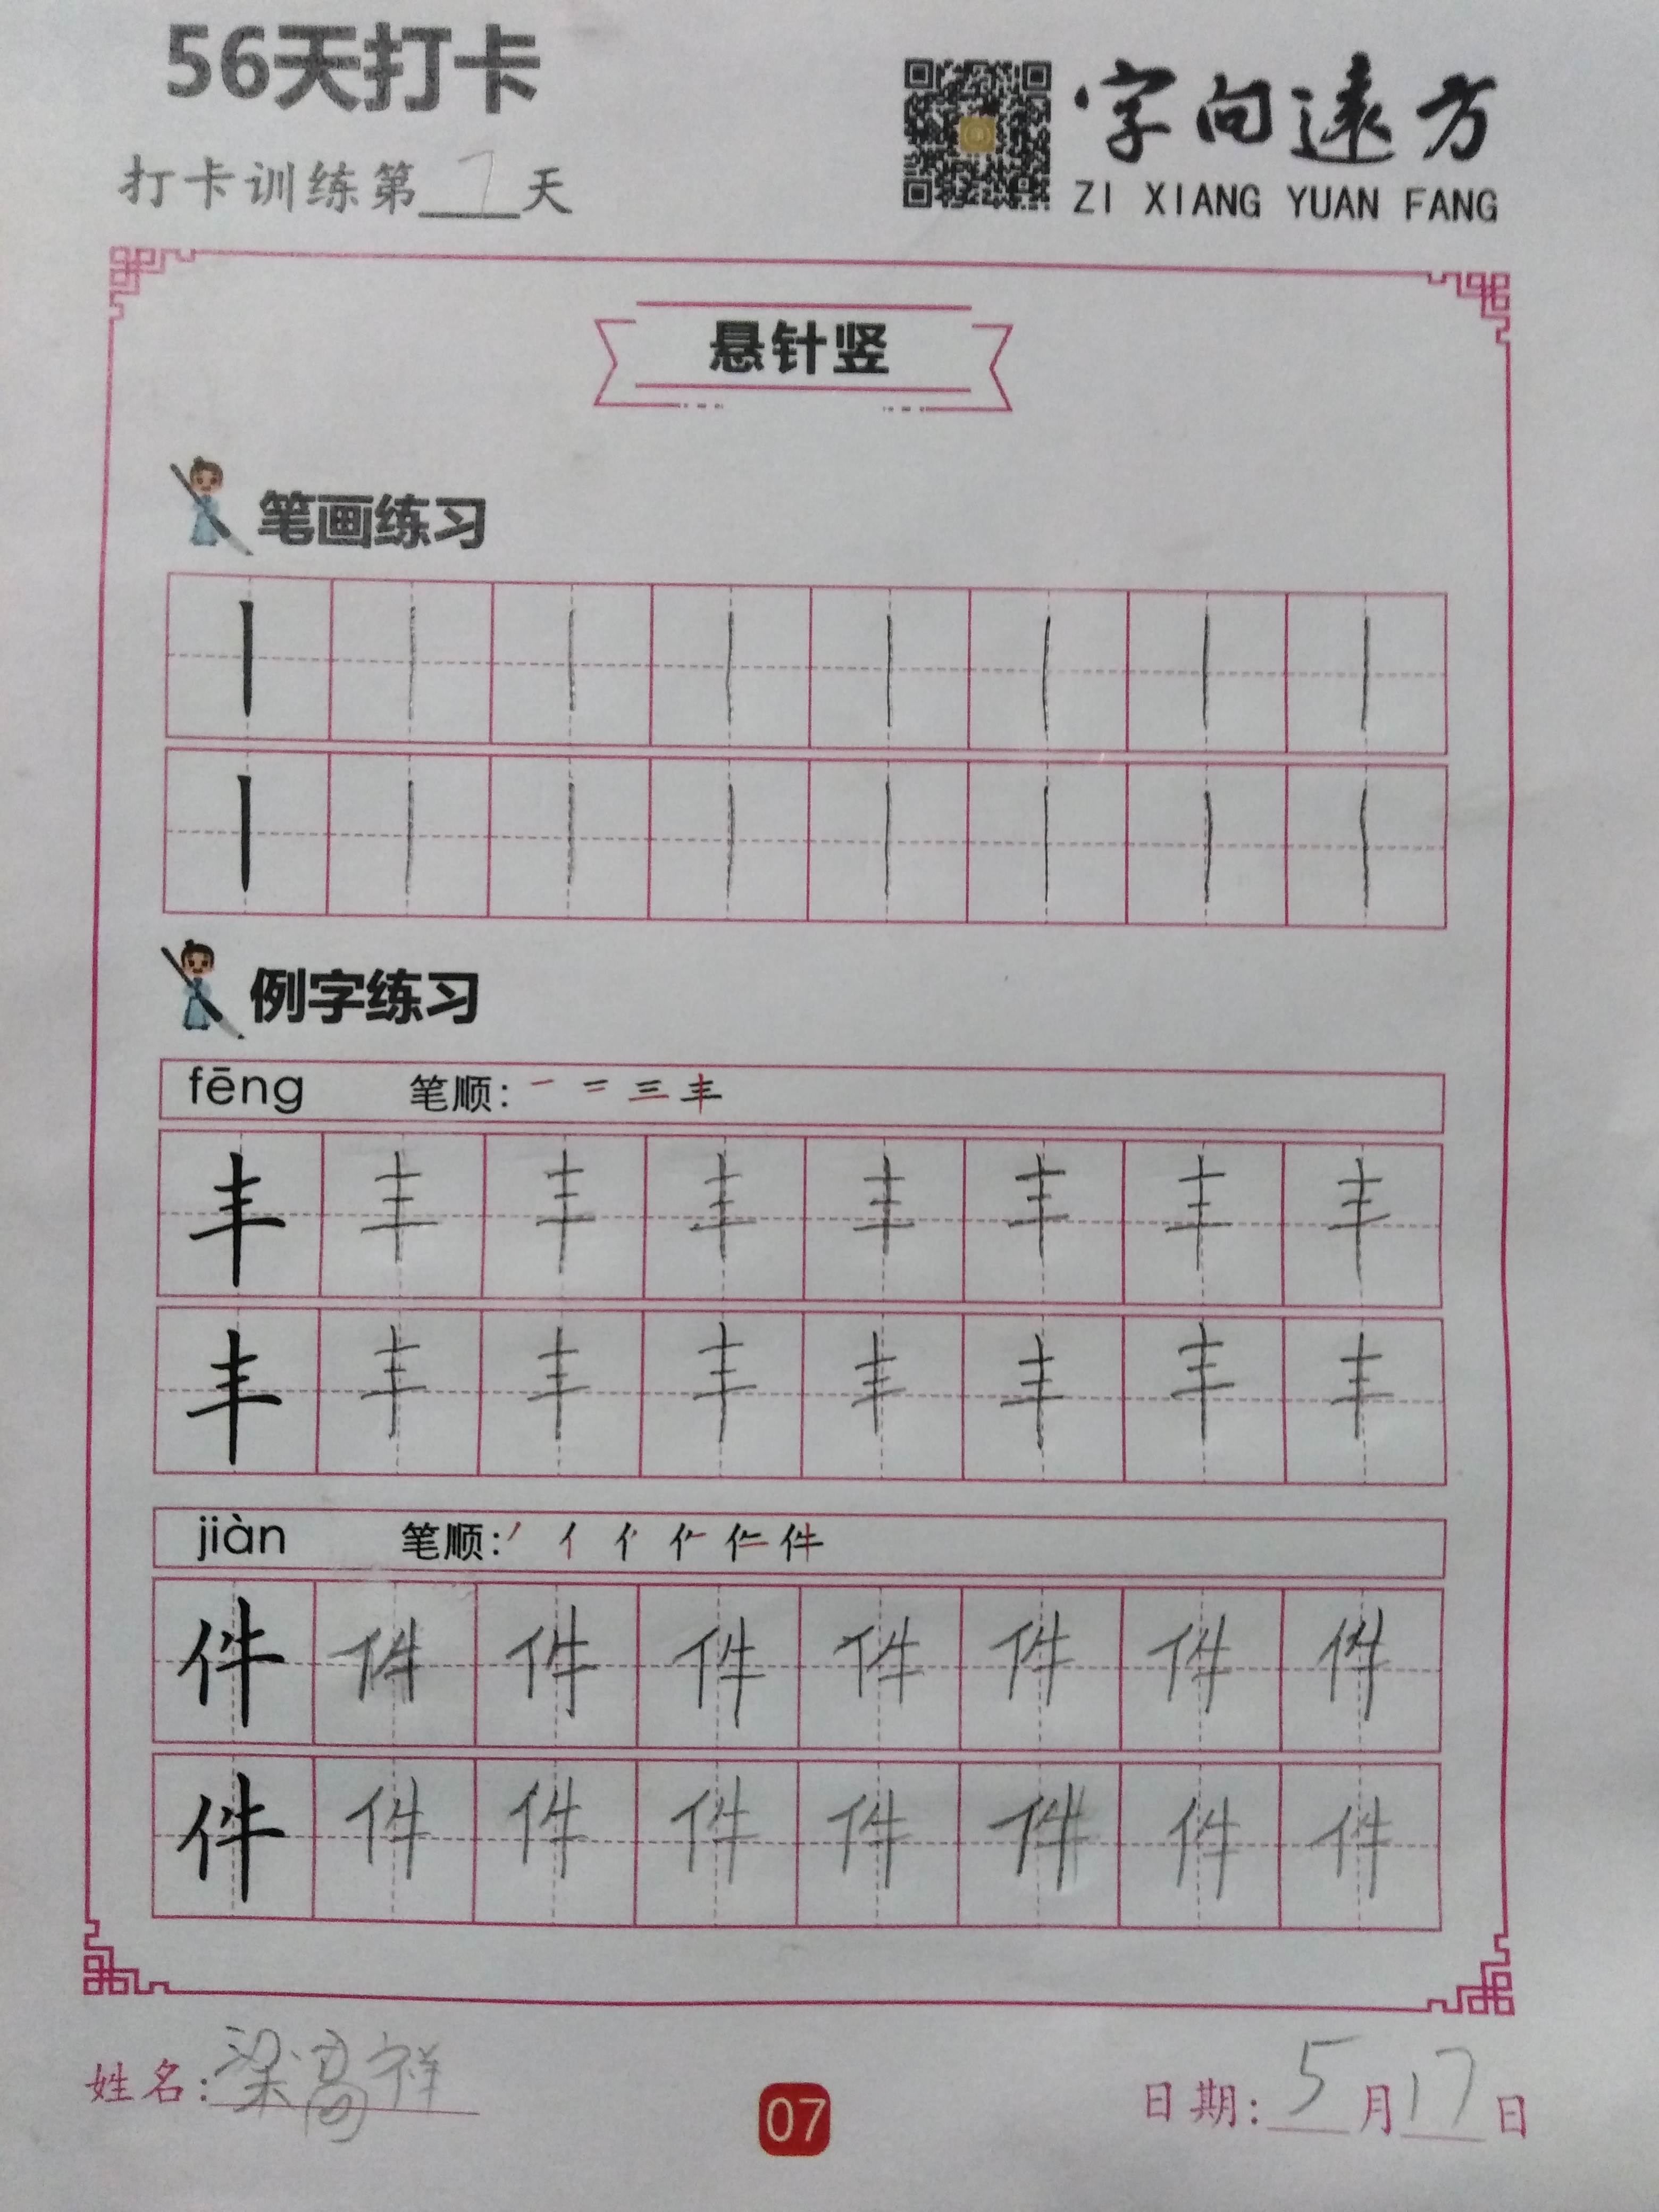 56天打卡
打卡训练第7天
字向遠方
ZI XIANG YUAN FANG
悬针竖
笔画练习
丨 丨 丨 丨 丨 丨 丨 丨
丨 丨 丨 丨 丨 丨 丨 丨
例字练习
fēng 笔顺: 一 二 三 丰
丰 丰 丰 丰 丰 丰 丰 丰
丰 丰 丰 丰 丰 丰 丰 丰
jiàn 笔顺:
件 件 件 件 件 件 件 件
件 件 件 件 件 件 件 件
姓名: 梁高祥
07
日期: 5月17日